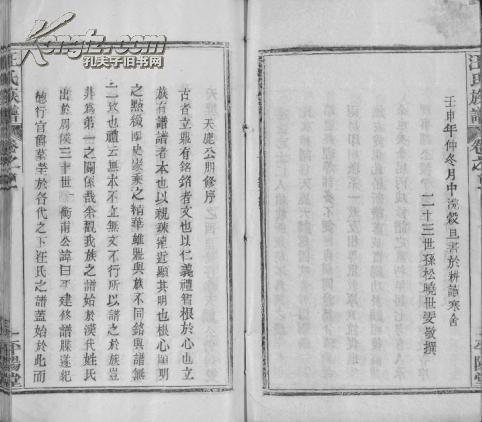 汪氏族譜
卷之
壬申年仲冬月中浣穀旦書於耕讀寒舍
二十三世孫松曉世雯敬撰
平陽堂
天應公朋修序
古者立鼎有銘銘者文也以仁義禮智根於心也立
族有譜譜者本也以親疎遠近顯其明也根於心顯明
之點微
史
之精華雖鼎與族不同銘與譜無
二致也禮云無本不立無文不行所以譜之於族豈
非為第一之關係哉余觀我族之譜始於漢代姓氏
出於周侯三十世
衡南公諱曰
建修譜牒遂紀
於各代之下汪氏之譜蓋始於此而
汪氏族譜
卷之
平陽堂
Kongfz.com
孔夫子旧书网